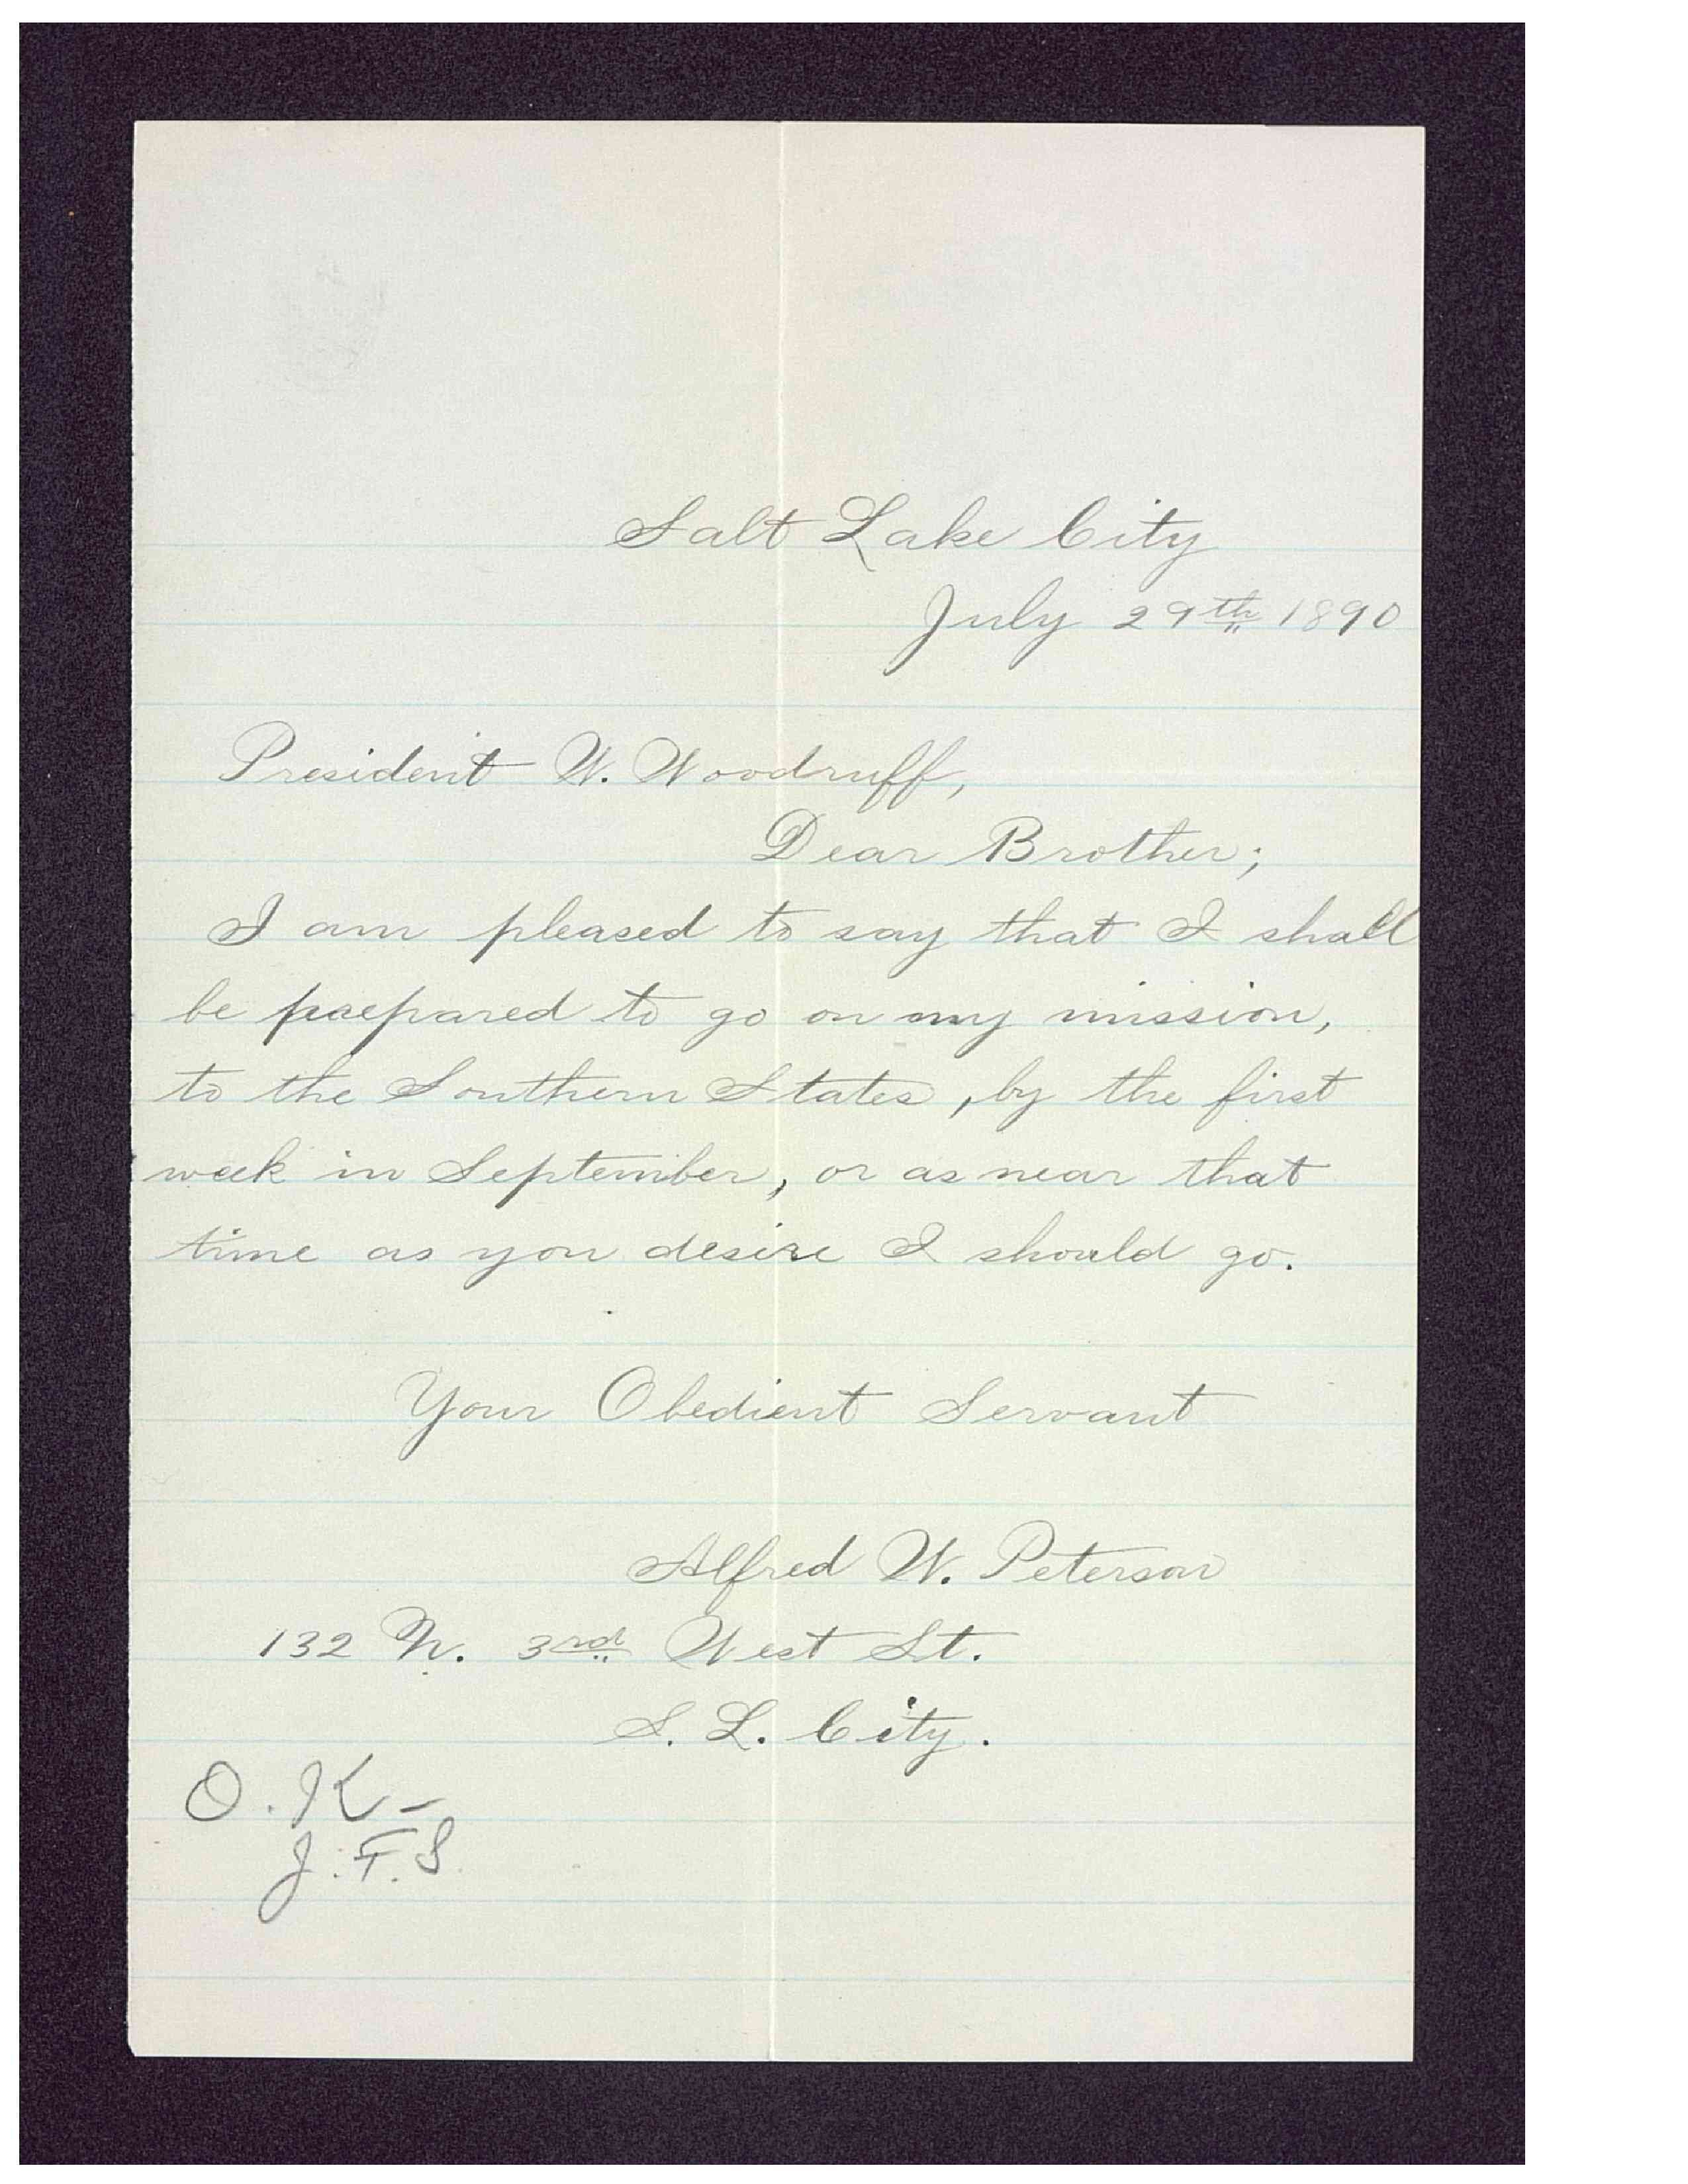 Salt Lake City
July 29th 1890
President W. Woodruff,
Dear Brother;
I am pleased to say that I shall
be prepared to go on my mission,
to the Southern States, by the first
week in September, or as near that
time as you desire I should go.
Your Obedient Servant
Alfred W. Peterson
132 N. 3rd West St.
S. L. City.
O. K-
J. F. S.